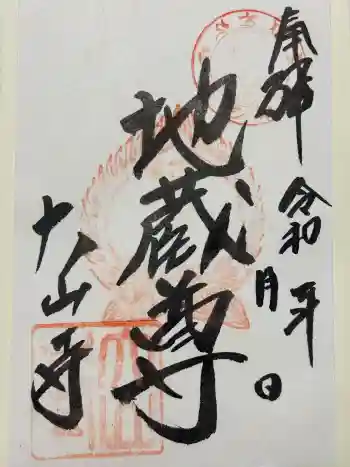 奉拝
令和 年 月 日
地蔵尊
大山寺